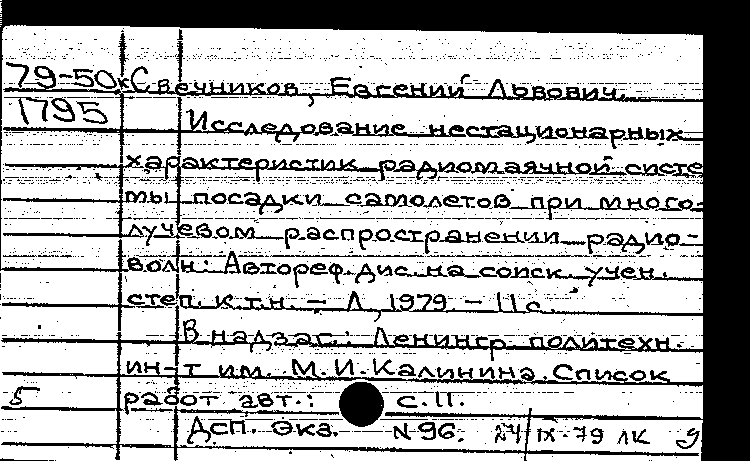 79-50к Свечников, Евгений Львович.
1795
Исследование нестационарных
характеристик радиомаячной систе
мы посадки самолетов при много-
лучевом распространении радио-
волн: Автореф. дис. на соиск. учен.
степ. к.т.н. – Л, 1979. – 11 с.
В надзаг.: Ленингр. политехн.
ин-т им. М.И. Калинина. Список
5 работ авт.: с. 11.
ДСП. Экз. N 96. 24/IX-79 ЛК 9